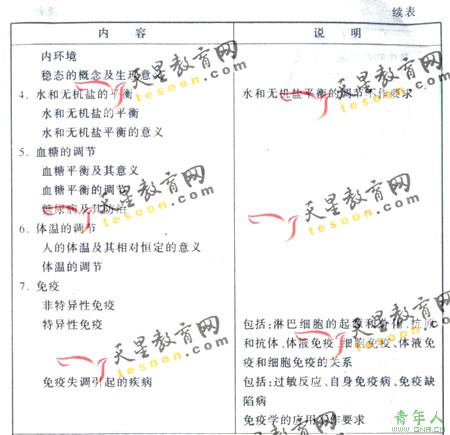 续表
内 容 说 明
内环境
稳态的概念及生理意义
4. 水和无机盐的平衡 水和无机盐平衡的调节不作要求
水和无机盐的平衡
水和无机盐平衡的意义
5. 血糖的调节
血糖平衡及其意义
血糖平衡的调节
糖尿病及其防治
6. 体温的调节
人的体温及其相对恒定的意义
体温的调节
7. 免疫
非特异性免疫
特异性免疫 包括:淋巴细胞的起源和分化、抗原
和抗体、体液免疫、细胞免疫、体液免
疫和细胞免疫的关系
免疫失调引起的疾病 包括:过敏反应、自身免疫病、免疫缺
陷病
免疫学的应用不作要求
天星教育网
tesoon.com
天星教育网
tesoon.com
天星教育网
tesoon.com
天星教育网
tesoon.com
天星教育网
tesoon.com
天星教育网
青年人
www.QNR.CN